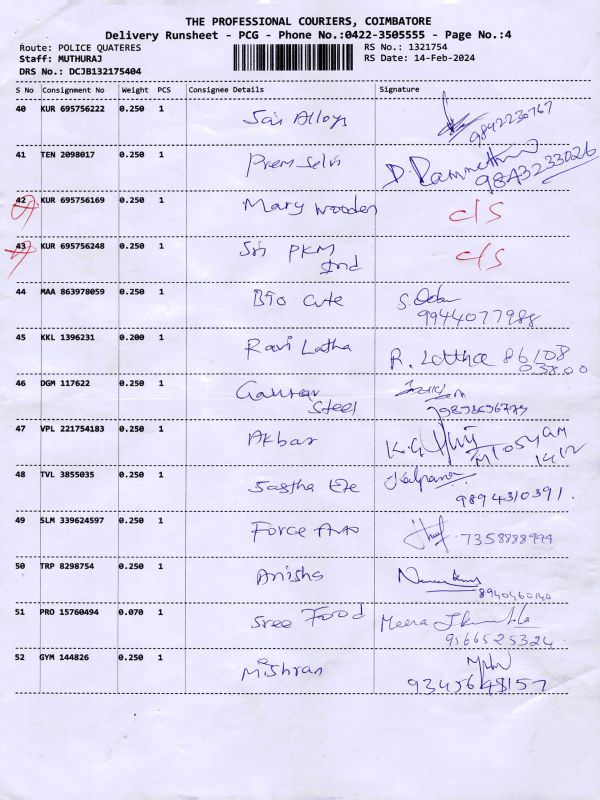 THE PROFESSIONAL COURIERS, COIMBATORE
Delivery Runsheet - PCG - Phone No.:0422-3505555 - Page No.:4
Route: POLICE QUATERES RS No.: 1321754
Staff: MUTHURAJ RS Date: 14-Feb-2024
DRS No.: DCJB132175404
S No Consignment No Weight PCS Consignee Details Signature
40 KUR 695756222 0.250 1 Sai Alloys
9842230767
41 TEN 2098017 0.250 1 Prem Selvi
9843233026
42 KUR 695756169 0.250 1 Mary Wooden C/S
43 KUR 695756248 0.250 1 Sri PKM C/S
Ind
44 MAA 863978059 0.250 1 Bio Cute
9944077988
45 KKL 1396231 0.200 1 Ravi Latha R. Lattha 86108
03800
46 DGM 117622 0.250 1 Gaurav
Steel
47 VPL 221754183 0.250 1 Akbar K.G.
48 TVL 3855035 0.250 1 Sastha Eye Kalpana
9894310391.
49 SLM 339624597 0.250 1 Force Auto 7358888999
50 TRP 8298754 0.250 1 Anisha
8940460140
51 PRO 15760494 0.070 1 Sree Food Meera
9566525324
52 GYM 144826 0.250 1 Mishran
9345648157